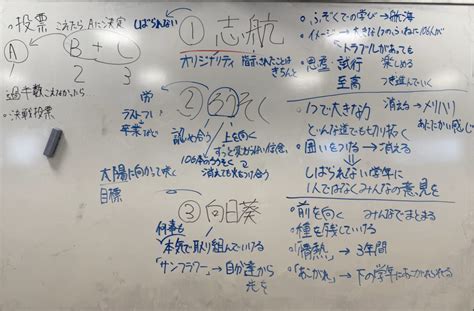 ・投票 これたら Aに決定
A B + C
1 2 3
過半数こえなかったら
・決戦投票
しばられない
① 志航
オリジナリティ 指示されたことは
きちんと
・ふぞくでの学び→航海
・イメージ→大きな1つのふねに106人が
トラブルがあっても
楽しめる
・思考 試行
至高 つき進んでいく
労
ラストフレ
卒業など
② ろうそく
認め合う 上を向く
ずっと変わらない信念
106本のろうそくで
消えても火をつけ合う
1つで大きな力 消える→メリハリ
あたたかい感じ
どんな道でも切り拓く
・囲いをつける→消える
しばられない学年に
1人ではなくみんなの意見を
太陽に向かって咲く
目標
③ 向日葵
何事も
本気で取り組んでいける
「サンフラワー」→自分達から
光を
・前を向く みんなでまとまる
・種を残していける
・「情熱」→3年間
・「あこがれ」→下の学年にあこがれられる